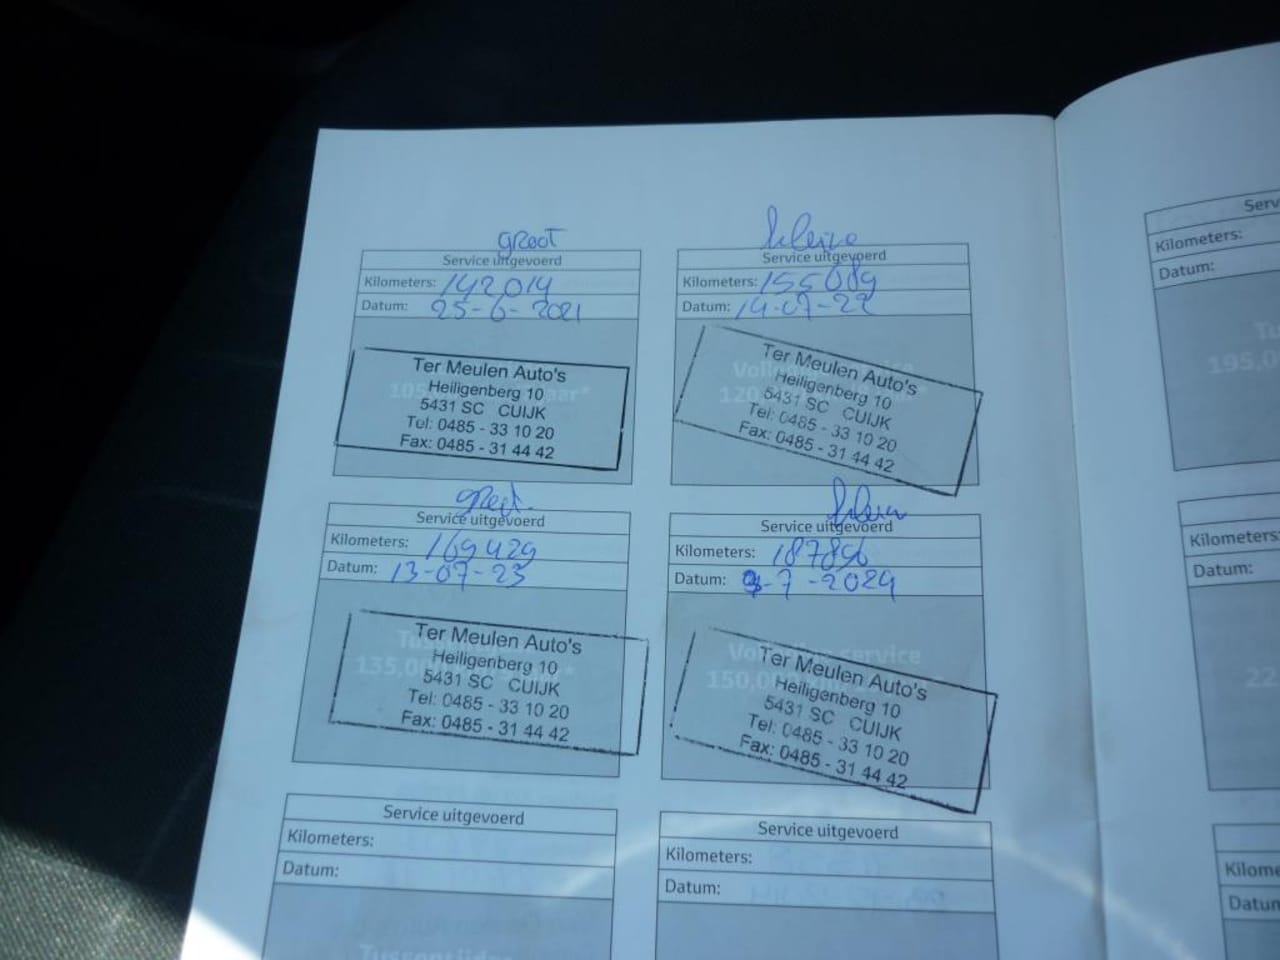 groot
Service uitgevoerd
Kilometers: 142014
Datum: 25-6-2021
Ter Meulen Auto's
Heiligenberg 10
5431 SC CUIJK
Tel: 0485 - 33 10 20
Fax: 0485 - 31 44 42
kleine
Service uitgevoerd
Kilometers: 155089
Datum: 14-07-22
Ter Meulen Auto's
Heiligenberg 10
5431 SC CUIJK
Tel: 0485 - 33 10 20
Fax: 0485 - 31 44 42
groot
Service uitgevoerd
Kilometers: 169429
Datum: 13-07-23
Ter Meulen Auto's
Heiligenberg 10
5431 SC CUIJK
Tel: 0485 - 33 10 20
Fax: 0485 - 31 44 42
klein
Service uitgevoerd
Kilometers: 187896
Datum: 9-7-2024
service
150,000
Ter Meulen Auto's
Heiligenberg 10
5431 SC CUIJK
Tel: 0485 - 33 10 20
Fax: 0485 - 31 44 42
Service uitgevoerd
Kilometers:
Datum:
Service uitgevoerd
Kilometers:
Datum:
Kilometers:
Datum:
Kilometers:
Datum: